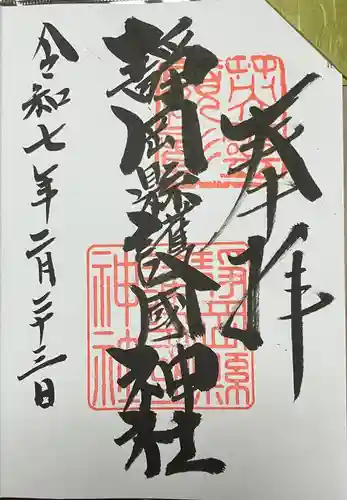 奉拝
靜岡縣護國神社
令和七年二月二十三日
靜岡縣護國神社